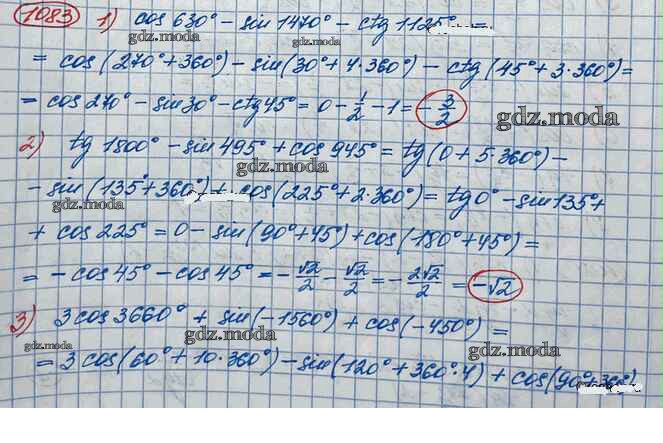 1083 1) cos 630° - sin 1470° - ctg 1125° =
gdz.moda gdz.moda
= cos (270° + 360°) - sin(30° + 4·360°) - ctg (45° + 3·360°) =
gdz.moda
= cos 270° - sin 30° - ctg 45° = 0 - 1/2 - 1 = -3/2
gdz.moda
2) tg 1800° - sin 495° + cos 945° = tg(0 + 5·360°) -
gdz.moda
- sin (135° + 360°) + cos(225° + 2·360°) = tg 0° - sin 135° +
gdz.moda
+ cos 225° = 0 - sin(90° + 45°) + cos(180° + 45°) =
= - cos 45° - cos 45° = - √2/2 - √2/2 = - 2√2/2 = -√2
3) 3 cos 3660° + sin(-1560°) + cos(-450°) =
gdz.moda gdz.moda
= 3 cos(60° + 10·360°) - sin(120° + 360°·4) + cos(90° + 360°)